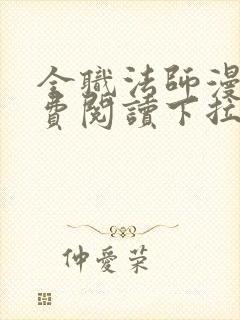 全職法師漫
費閱讀下拉
仲愛荣